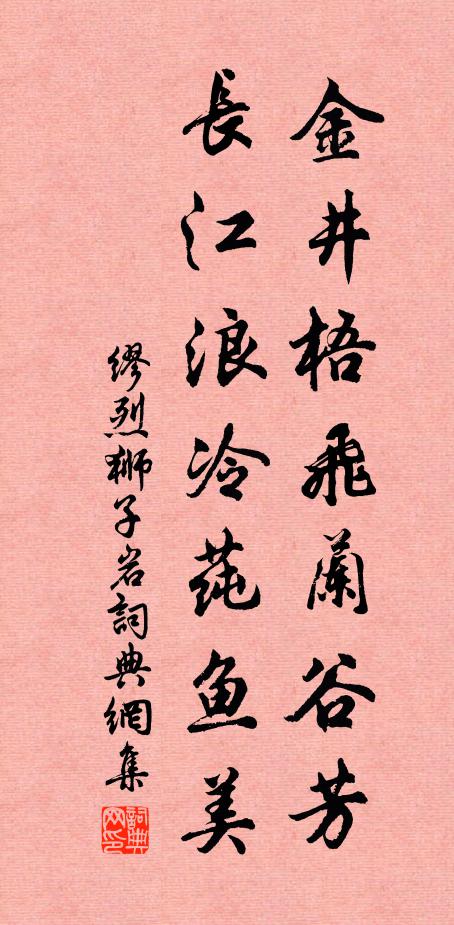 金井梧飛蘭谷芳
長江浪冷莼鱼美
缪烈狮子岩詞典網集
詞典网印